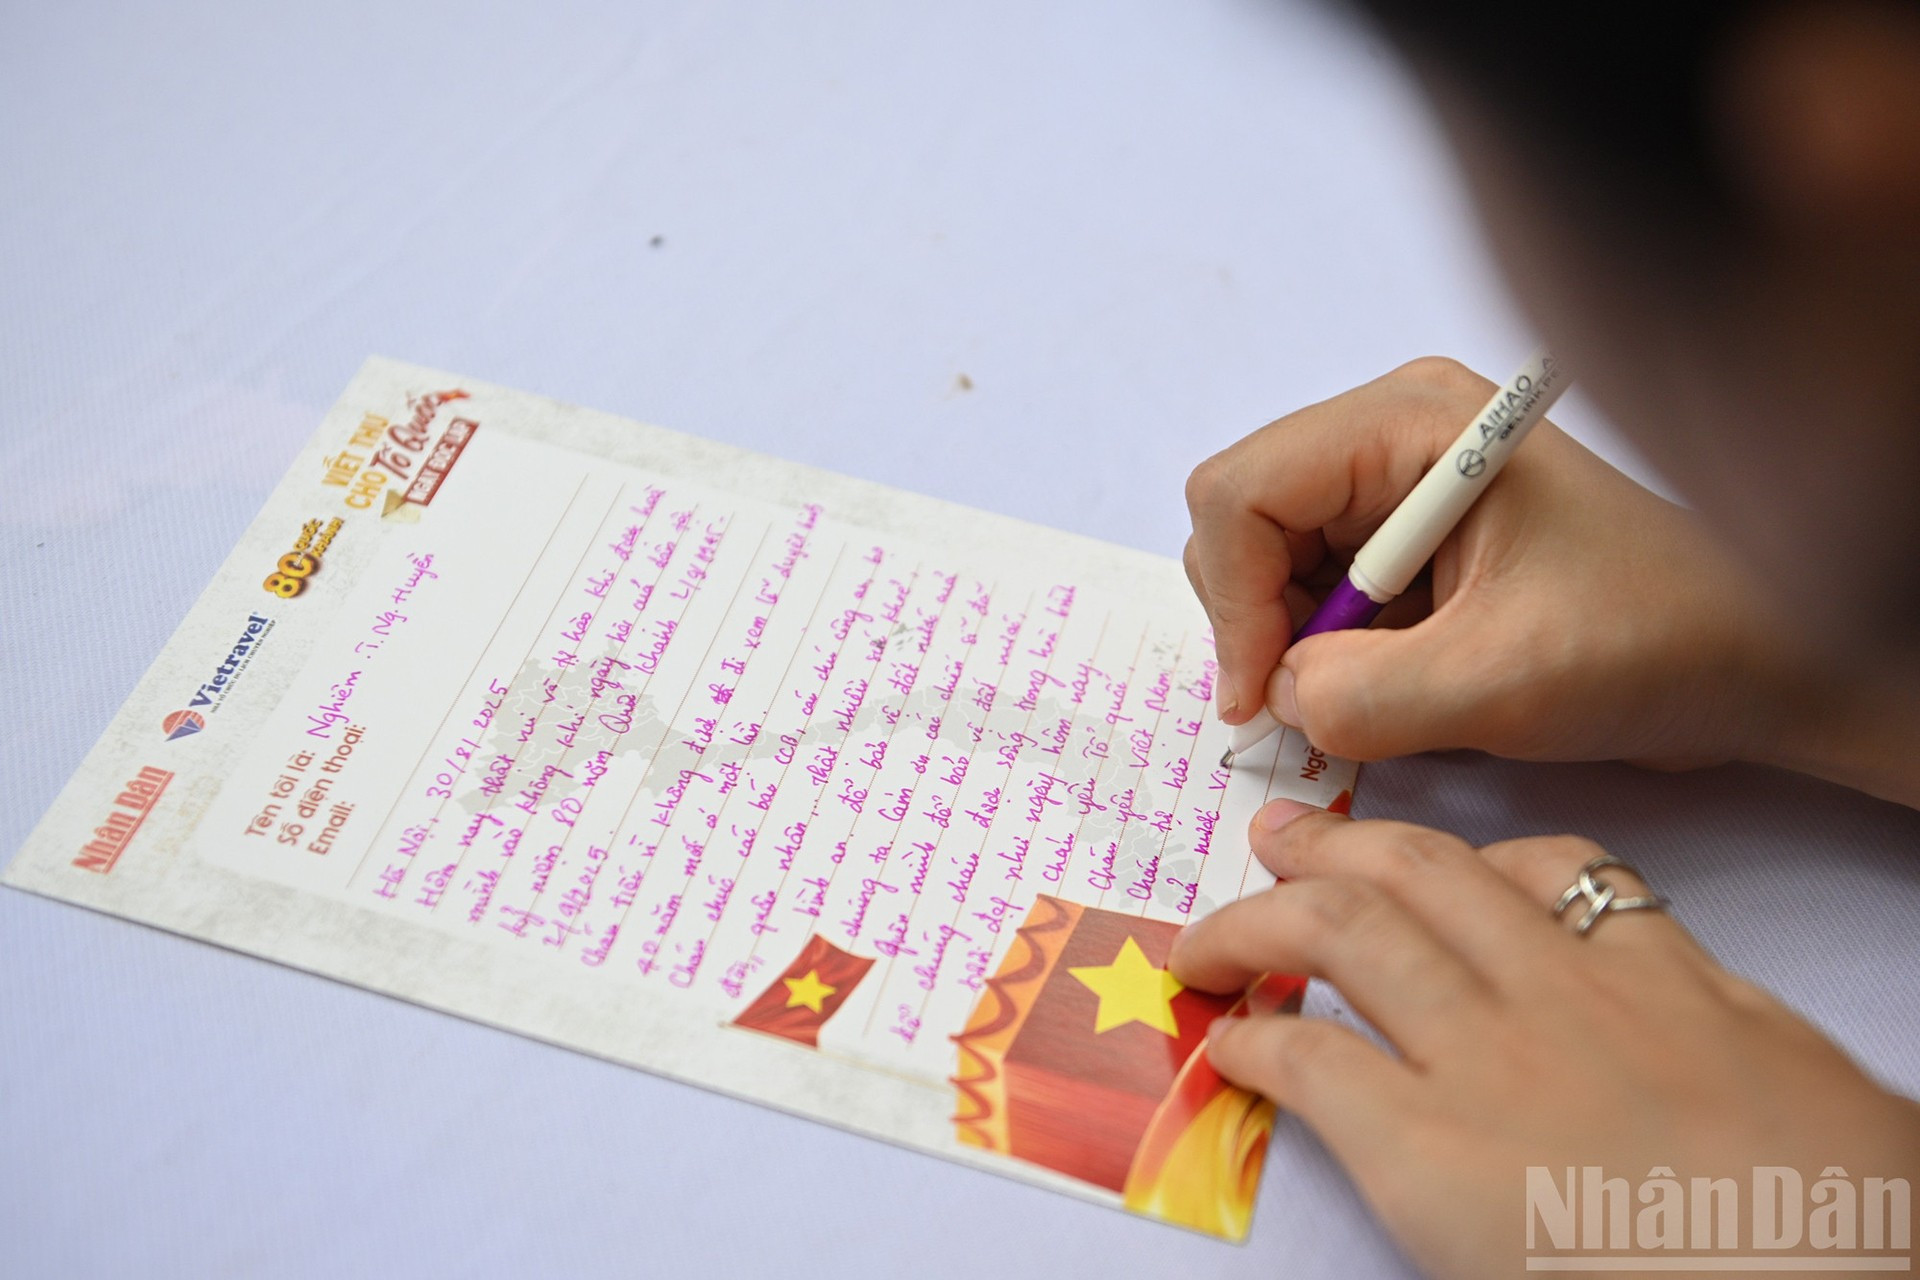 Nhân Dân
Vietravel
80 QUỐC KHÁNH
VIẾT THƯ
CHO Tổ Quốc
NGÀY ĐỘC LẬP
Tên tôi là: Nghiêm T. Ng. Huyền
Số điện thoại:
Email:
Hà Nội, 30/8/2025
Hôm nay thật vui và tự hào khi được hoà
mình vào không khí ngày hội của dân tộc
kỷ niệm 80 năm Quốc khánh 2/9/1945 -
2/9/2025.
Cháu tiếc vì không được đi xem lễ duyệt binh
40 năm mới có một lần.
Cháu chúc các bác CCB, các chú công an, bộ
đội, quân nhân, thật nhiều sức khoẻ,
bình an để bảo vệ đất nước của
chúng ta. Cảm ơn các chiến sĩ đã
quên mình để bảo vệ đất nước,
để chúng cháu được sống trong hoà bình
tươi đẹp như ngày hôm nay.
Cháu yêu Tổ quốc.
Cháu yêu Việt Nam
Cháu tự hào là công
của nước Vi
AIHAO
GEL INK PE
Nhân Dân